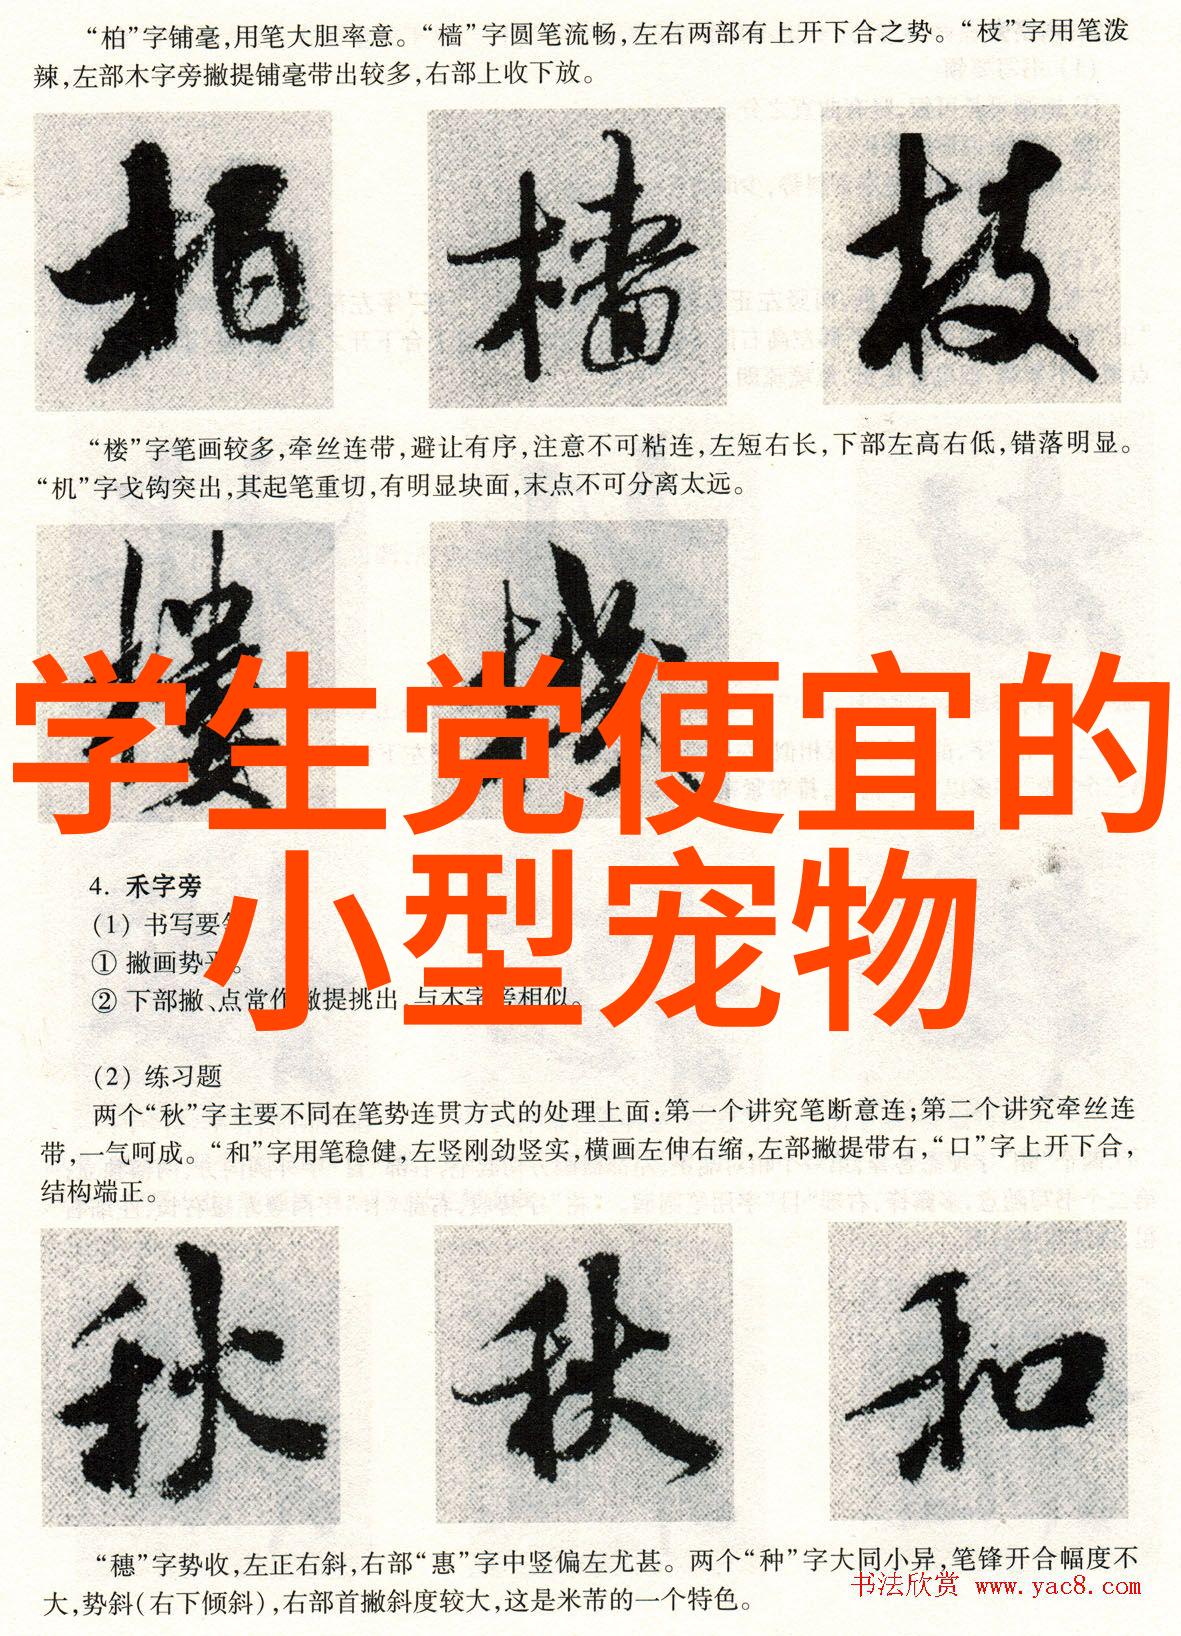 “柏”字铺毫,用笔大胆率意。“樯”字圆笔流畅,左右两部有上开下合之势。“枝”字用笔泼
辣,左部木字旁撇提铺毫带出较多,右部上收下放。
柏 樯 枝
“楼”字笔画较多,牵丝连带,避让有序,注意不可粘连,左短右长,下部左高右低,错落明显。
“机”字戈钩突出,其起笔重切,有明显块面,末点不可分离太远。
学生党便宜的
小型宠物
4. 禾字旁
(1) 书写要
① 撇画势平。
② 下部撇、点常作撇提挑出,与木字旁相似。
(2) 练习题
两个“秋”字主要不同在笔势连贯方式的处理上面:第一个讲究笔断意连;第二个讲究牵丝连
带,一气呵成。“和”字用笔稳健,左竖刚劲竖实,横画左伸右缩,左部撇提带右,“口”字上开下合,
结构端正。
秋 秋 和
“穗”字势收,左正右斜,右部“惠”字中竖偏左尤甚。两个“种”字大同小异,笔锋开合幅度不
大,势斜(右下倾斜),右部首撇斜度较大,这是米芾的一个特色。
书法欣赏 www.yac8.com